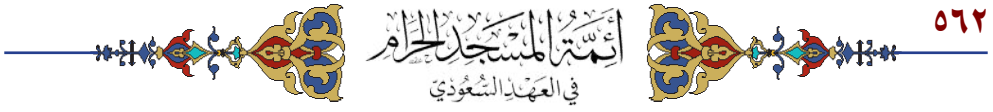 ٥٦٢
أَئِمَّةُ المَسْجِدِ الحَرَامِ
فِي العَهْدِ السُّعُودِيّ